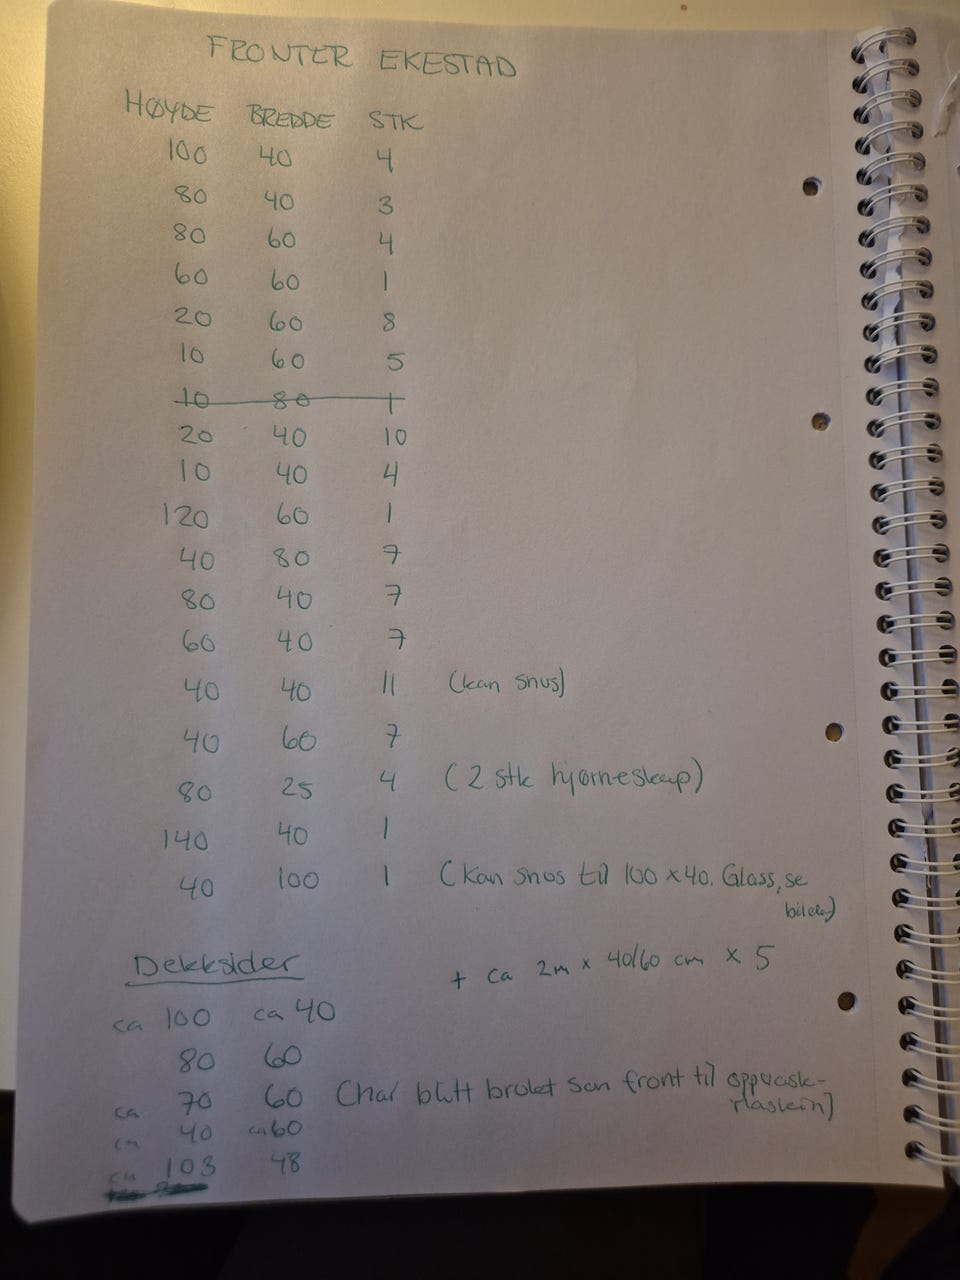 FRONTER EKESTAD
HØYDE BREDDE STK
100 40 4
80 40 3
80 60 4
60 60 1
20 60 8
10 60 5
10 80 1
20 40 10
10 40 4
120 60 1
40 80 7
80 40 7
60 40 7
40 40 11 (kan snus)
40 60 7
80 25 4 (2 stk hjørneskap)
140 40 1
40 100 1 (Kan snus til 100 x 40. Glass, se
bilde)
Dekksider
+ ca 2m x 40/60 cm x 5
ca 100 ca 40
80 60
ca 70 60 (har blitt brukt som front til oppvask-
maskin)
ca 40 ca 60
ca 103 48